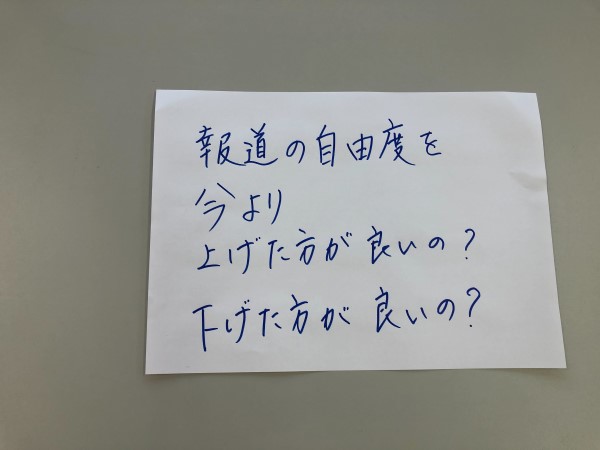 報道の自由度を
今より
上げた方が良いの?
下げた方が良いの?